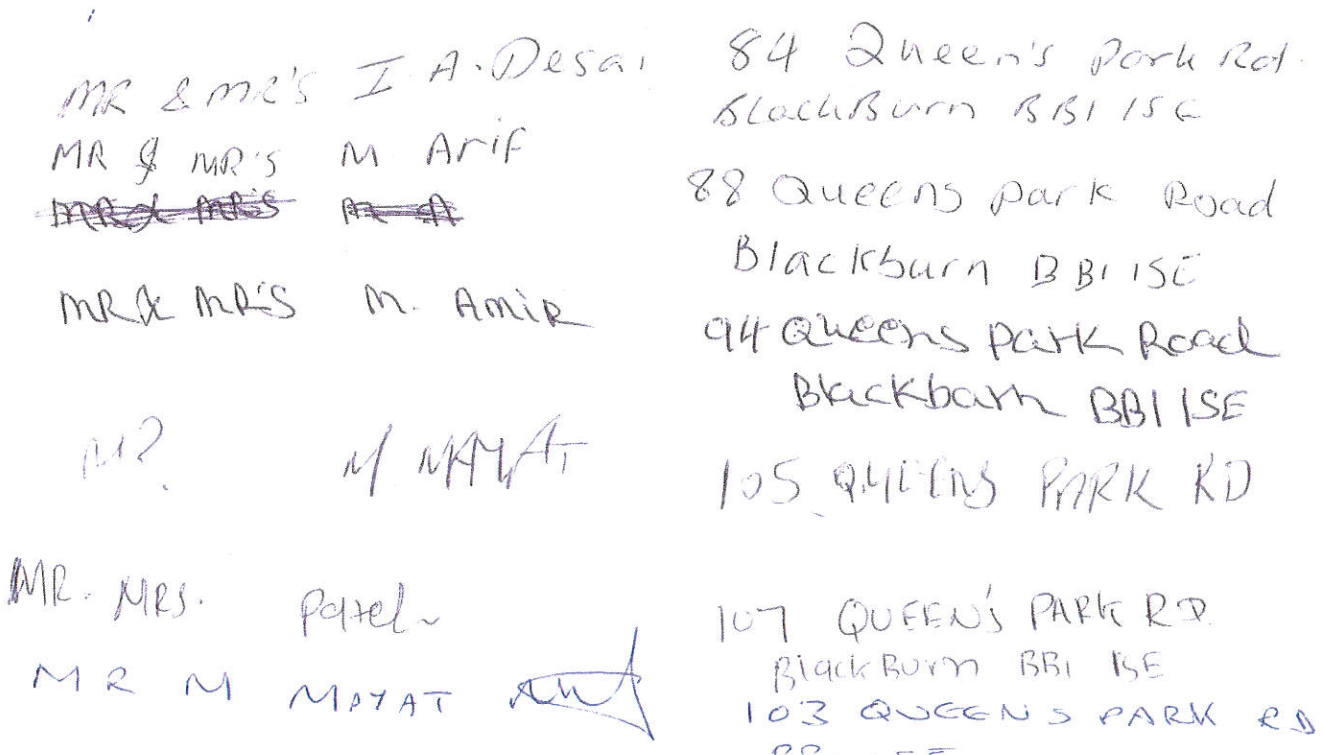 MR & MR'S I. A. Desai 84 Queen's Park Rd.
BlackBurn BB1 1SE
MR & MR'S M Arif 88 Queens Park Road
Blackburn BB1 1SE
MR & MR'S M. Amir 94 Queens Park Road
Blackburn BB1 1SE
MR M MAYAT 105 QUEENS PARK RD
MR. MRS. Patel 107 QUEEN'S PARK RD
BlackBurn BB1 1SE
MR M MAYAT 103 QUEENS PARK RD